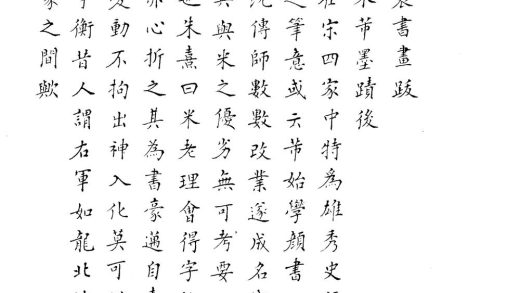 書畫跋
芾墨蹟後
宋四家中特為雄秀史
筆意或云芾始學顏書
傳師數數改業遂成名
與米之優劣無可考要
朱熹曰米老理會得字
心折之其為書豪邁自
動不拘出神入化莫可
衡昔人謂右軍如龍北
之間歟